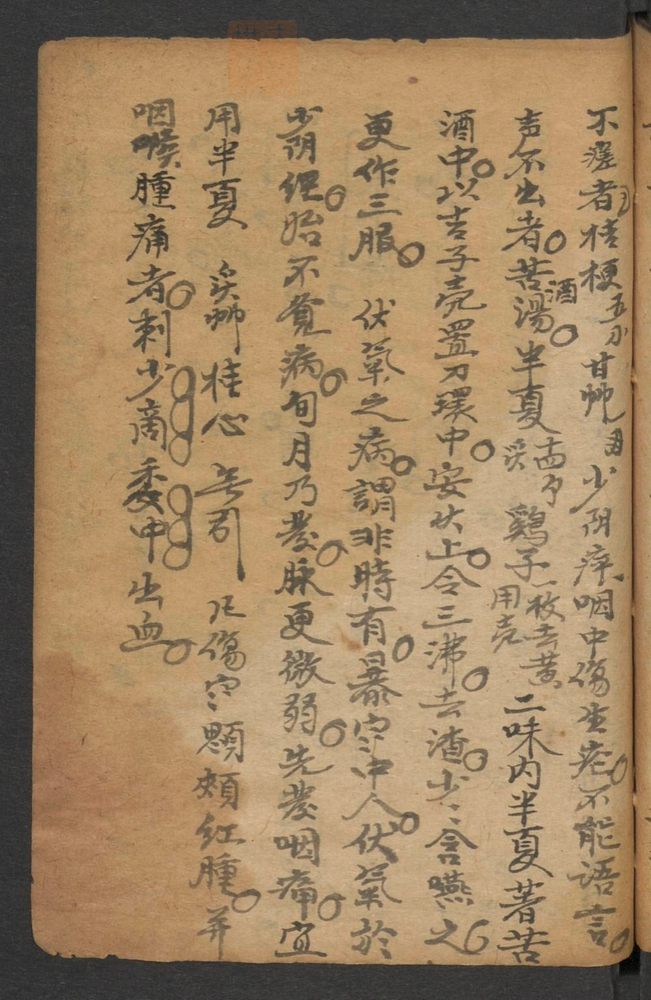 不瘥者桔梗五分甘艸 少阴病咽中傷生瘡不能語言
声不出者苦酒湯半夏 炙 鷄子一枚去黄用壳 二味内半夏著苦
酒中以吉子壳置刀環中安火上令三沸去渣少〻含嚥之
更作三服 伏氣之病謂非時有暴寒中人伏氣於
少阴經始不覺病旬月乃發脉更微弱先發咽痛宜
用半夏 炙艸 桂心 等列 凡傷寒顋頰红腫并
咽喉腫痛者刺少商委中出血